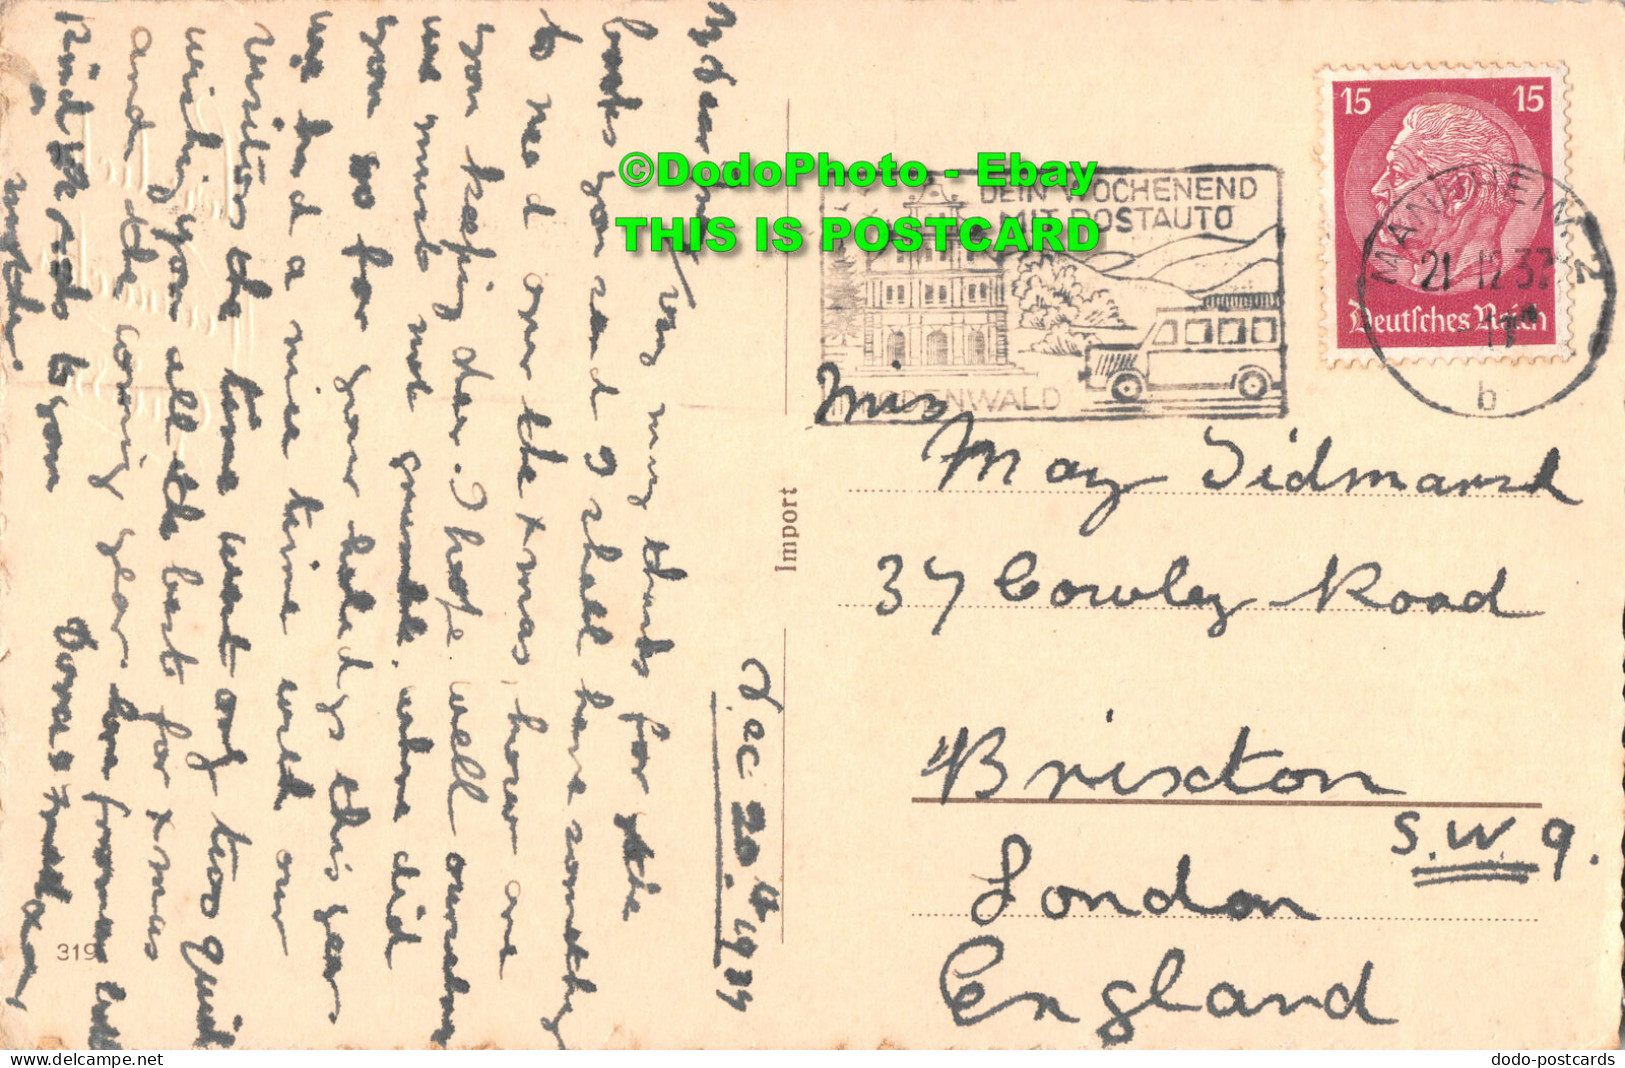 Dec 20th 1937
My dear May, very many thanks for the
books you send I shall have something
to read over the xmas, how are
you keeping dear. I hope well ourselves
we must not grumble. where did
you go for your holidays this year
we had a nice time with our
visitors the time went only too quick
wishing you all the best for xmas
and the coming year. love from us both
Kind regards to your
mother
Miss
May Tidmarsh
37 Cowley Road
Brixton
S.W. 9.
London
England
Import
319
15 15
Deutsches Reich
MANNHEIM 2
21.12.37
17
b
DEIN WOCHENEND
MIT POSTAUTO
IM ODENWALD
©DodoPhoto - Ebay
THIS IS POSTCARD
dodo-postcards
www.delcampe.net